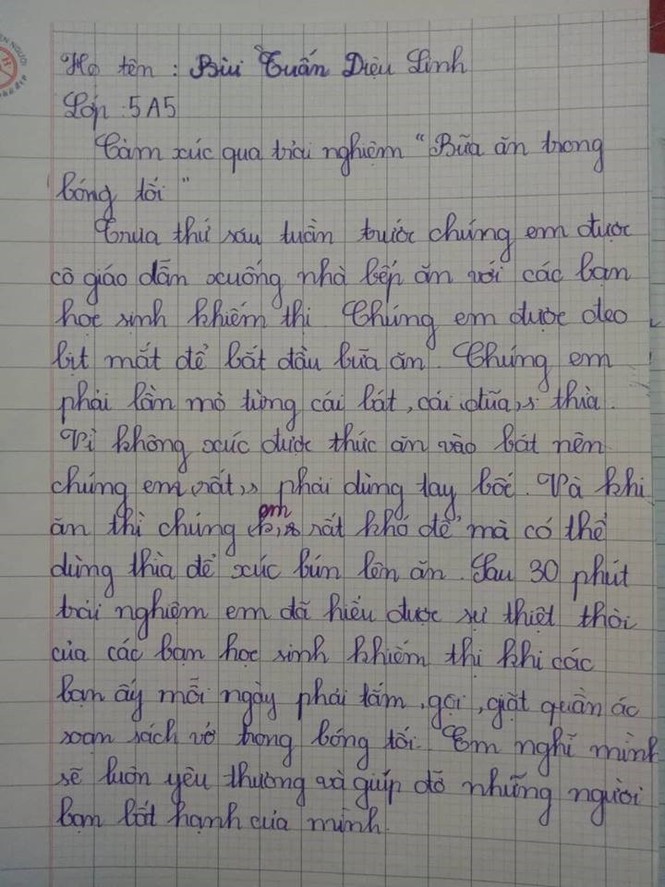 Họ tên : Bùi Tuấn Diệu Linh
Lớp : 5A5
Cảm xúc qua trải nghiệm "Bữa ăn trong
bóng tối"
Trưa thứ sáu tuần trước chúng em được
cô giáo dẫn xuống nhà bếp ăn với các bạn
học sinh khiếm thị Chúng em được đeo
bịt mắt để bắt đầu bữa ăn. Chúng em
phải lần mò từng cái bát, cái đũa, thìa.
Vì không xúc được thức ăn vào bát nên
chúng em phải dùng tay bốc. Và khi
ăn thì chúng em rất khó để mà có thể
dùng thìa để xúc bún lên ăn. Sau 30 phút
trải nghiệm em đã hiểu được sự thiệt thòi
của các bạn học sinh khiếm thị khi các
bạn ấy mỗi ngày phải tắm, gội, giặt quần áo
soạn sách vở trong bóng tối. Em nghĩ mình
sẽ luôn yêu thương và giúp đỡ những người
bạn bất hạnh của mình.